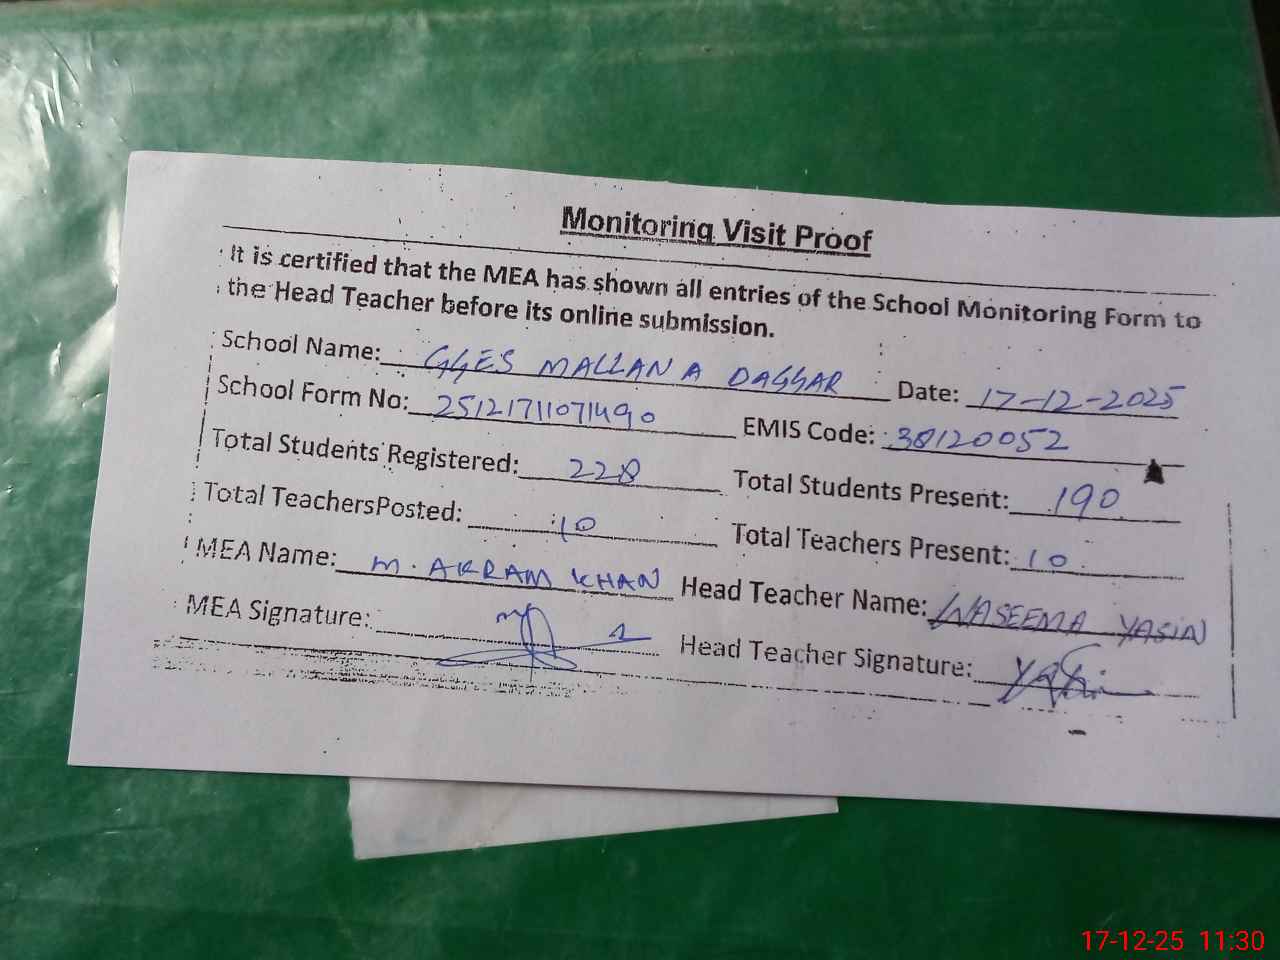 Monitoring Visit Proof
It is certified that the MEA has shown all entries of the School Monitoring Form to
the Head Teacher before its online submission.
School Name: GGES MALLANA DAGGAR Date: 17-12-2025
School Form No: 25121711071490 EMIS Code: 38120052
Total Students Registered: 228 Total Students Present: 190
Total TeachersPosted: 10 Total Teachers Present: 10
MEA Name: M. AKRAM KHAN Head Teacher Name: WASEEMA YASIN
MEA Signature: Head Teacher Signature:
17-12-25 11:30